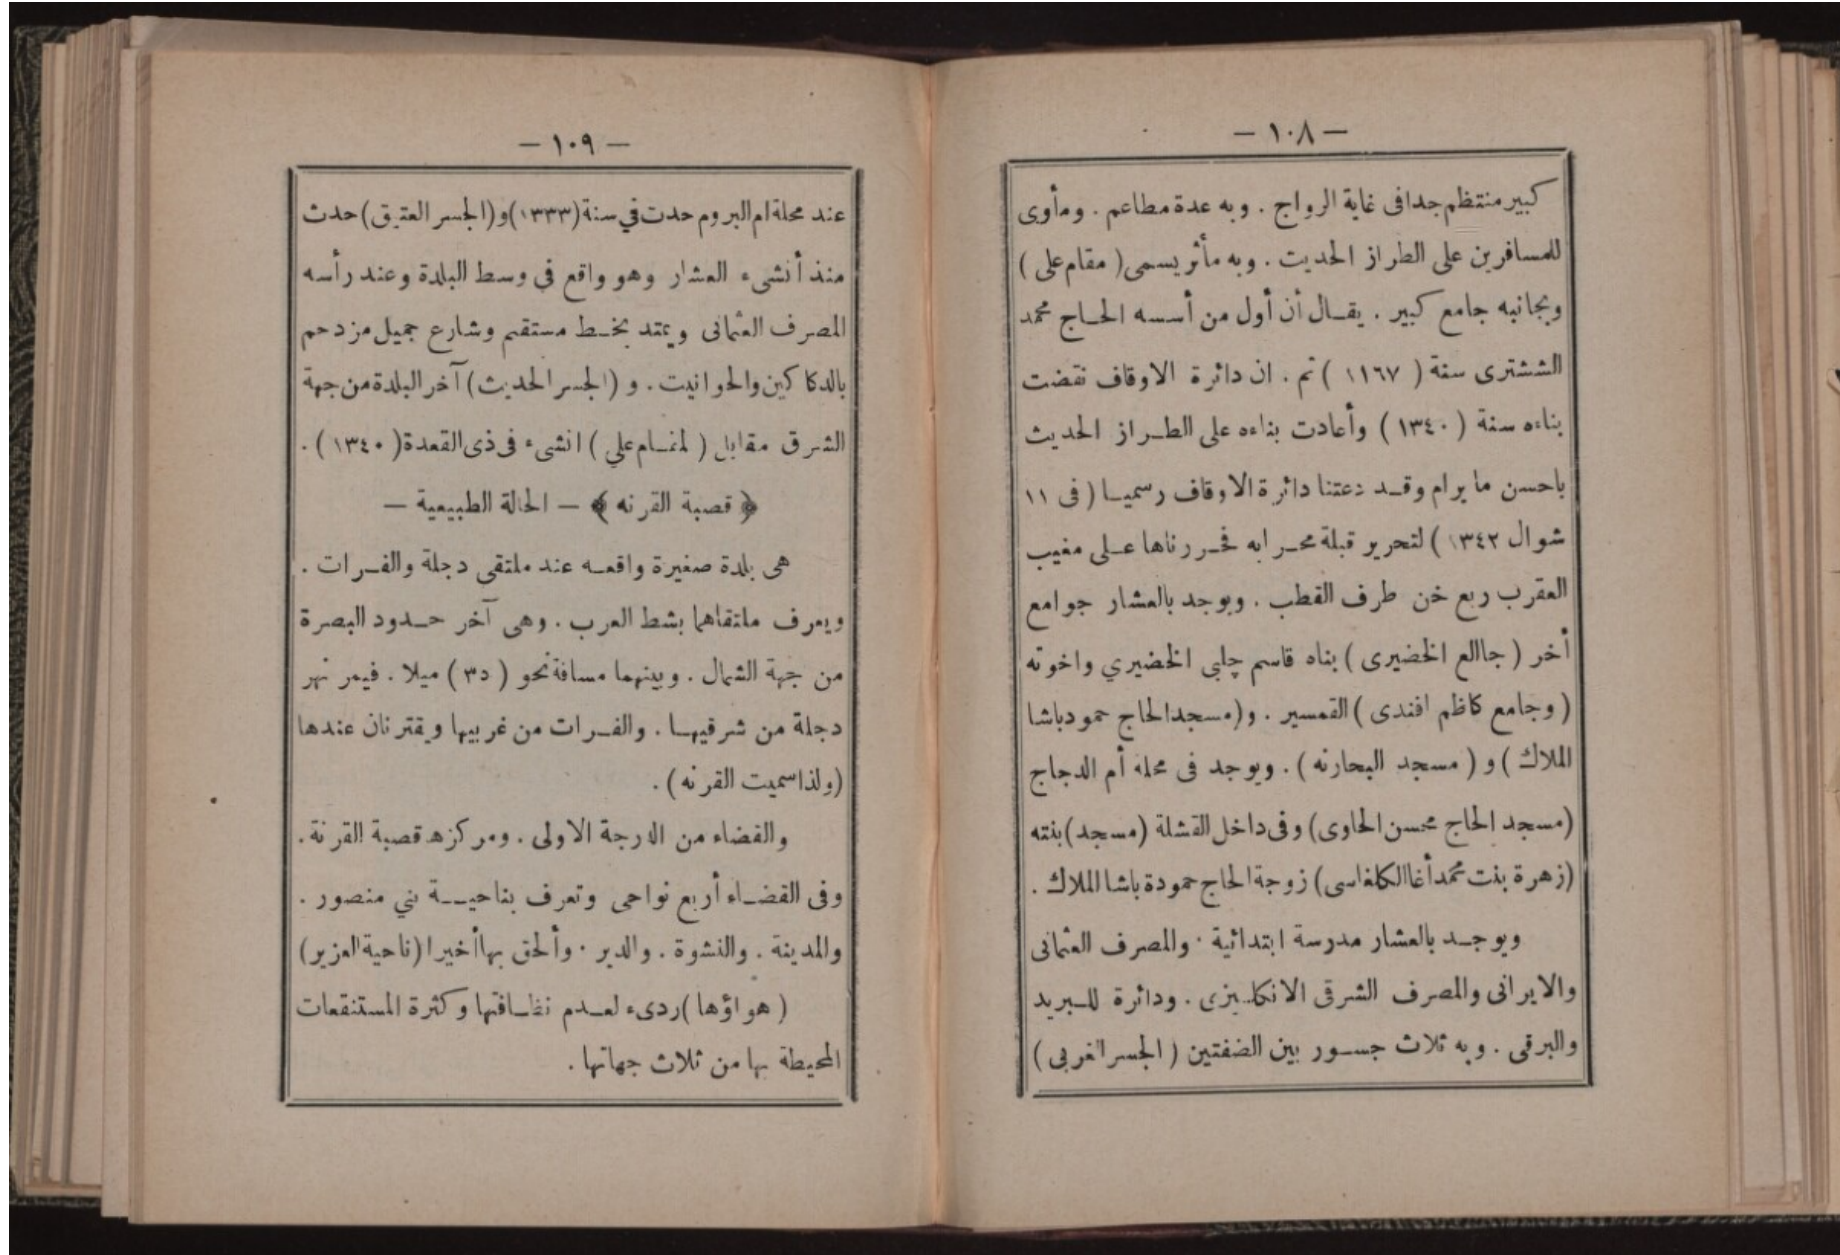 — ١٠٨ —
كبير منتظم جدا في غاية الرواج . وبه عدة مطاعم . ومأوى
للمسافرين على الطراز الحديث . وبه مأثر يسمى ( مقام على )
وبجانبه جامع كبير . يقال أن أول من أسسه الحاج محمد
الششترى سنة ( ١١٦٧ ) تم . ان دائرة الاوقاف نقضت
بناءه سنة ( ١٣٤٠ ) وأعادت بناءه على الطراز الحديث
باحسن ما يرام وقد دعتنا دائرة الاوقاف رسميا ( فى ١١
شوال ١٣٤٢ ) لتحرير قبلة محرابه فحررناها على مغيب
العقرب ربع خن طرف القطب . ويوجد بالعشار جوامع
أخر ( جاالع الخضيرى ) بناه قاسم چلبى الخضيري واخوته
( وجامع كاظم افندى ) القمسير . و ( مسجد الحاج حمود باشا
الملاك ) و ( مسجد البحارنه ) . ويوجد فى محلة أم الدجاج
( مسجد الحاج محسن الحاوى ) وفى داخل القشلة ( مسجد ) بنته
( زهرة بنت محمد أغا الكلغاسى ) زوجة الحاج حمودة باشا الملاك .
ويوجد بالعشار مدرسة ابتدائية . والمصرف العثمانى
والايرانى والمصرف الشرقى الانكليزى . ودائرة للبريد
والبرقى . وبه ثلاث جسور بين الضفتين ( الجسر الغربى )
— ١٠٩ —
عند محلة ام البروم حدث في سنة ( ١٣٣٣ ) و ( الجسر العتيق ) حدث
منذ أنشىء العشار وهو واقع فى وسط البلدة وعند رأسه
المصرف العثمانى ويمتد بخط مستقيم وشارع جميل مزدحم
بالدكاكين والحوانيت . و ( الجسر الحديث ) آخر البلدة من جهة
الشرق مقابل ( لمقام علي ) انشىء فى ذى القعدة ( ١٣٤٠ ) .
﴿ قصبة القرنه ﴾ — الحالة الطبيعية —
هى بلدة صغيرة واقعه عند ملتقى دجلة والفرات .
ويعرف ملتقاهما بشط العرب . وهى آخر حدود البصرة
من جهة الشمال . وبينهما مسافة نحو ( ٣٥ ) ميلا . فيمر نهر
دجلة من شرقيها . والفرات من غربيها ويقترنان عندها
( ولذا سميت القرنه ) .
والقضاء من الدرجة الاولى . ومركزه قصبة القرنة .
وفى القضاء أربع نواحى وتعرف بناحية بني منصور .
والمدينة . والنشوة . والدير . وألحق بها أخيرا ( ناحية العزير )
( هواؤها ) ردىء لعدم نظافتها وكثرة المستنقعات
المحيطة بها من ثلاث جهاتها .